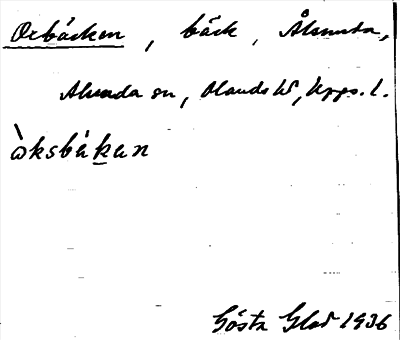 Oxbäcken, bäck, Ålsunda,
Alunda sn, Olands hd, Upps. l.
ò̀ksbä̀kan
Gösta Glad 1936